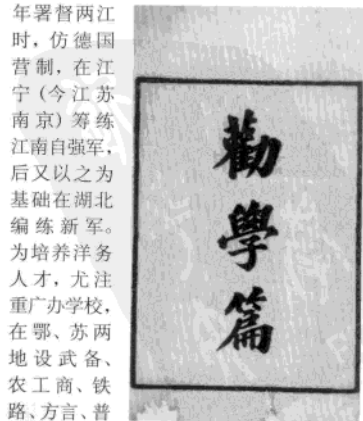 年署督两江
时，仿德国
营制，在江
宁(今江苏
南京)筹练
江南自强军，
后又以之为
基础在湖北
编练新军。
为培养洋务
人才，尤注
重广办学校，
在鄂、苏两
地设武备、
农工商、铁
路、方言、普
勸學篇